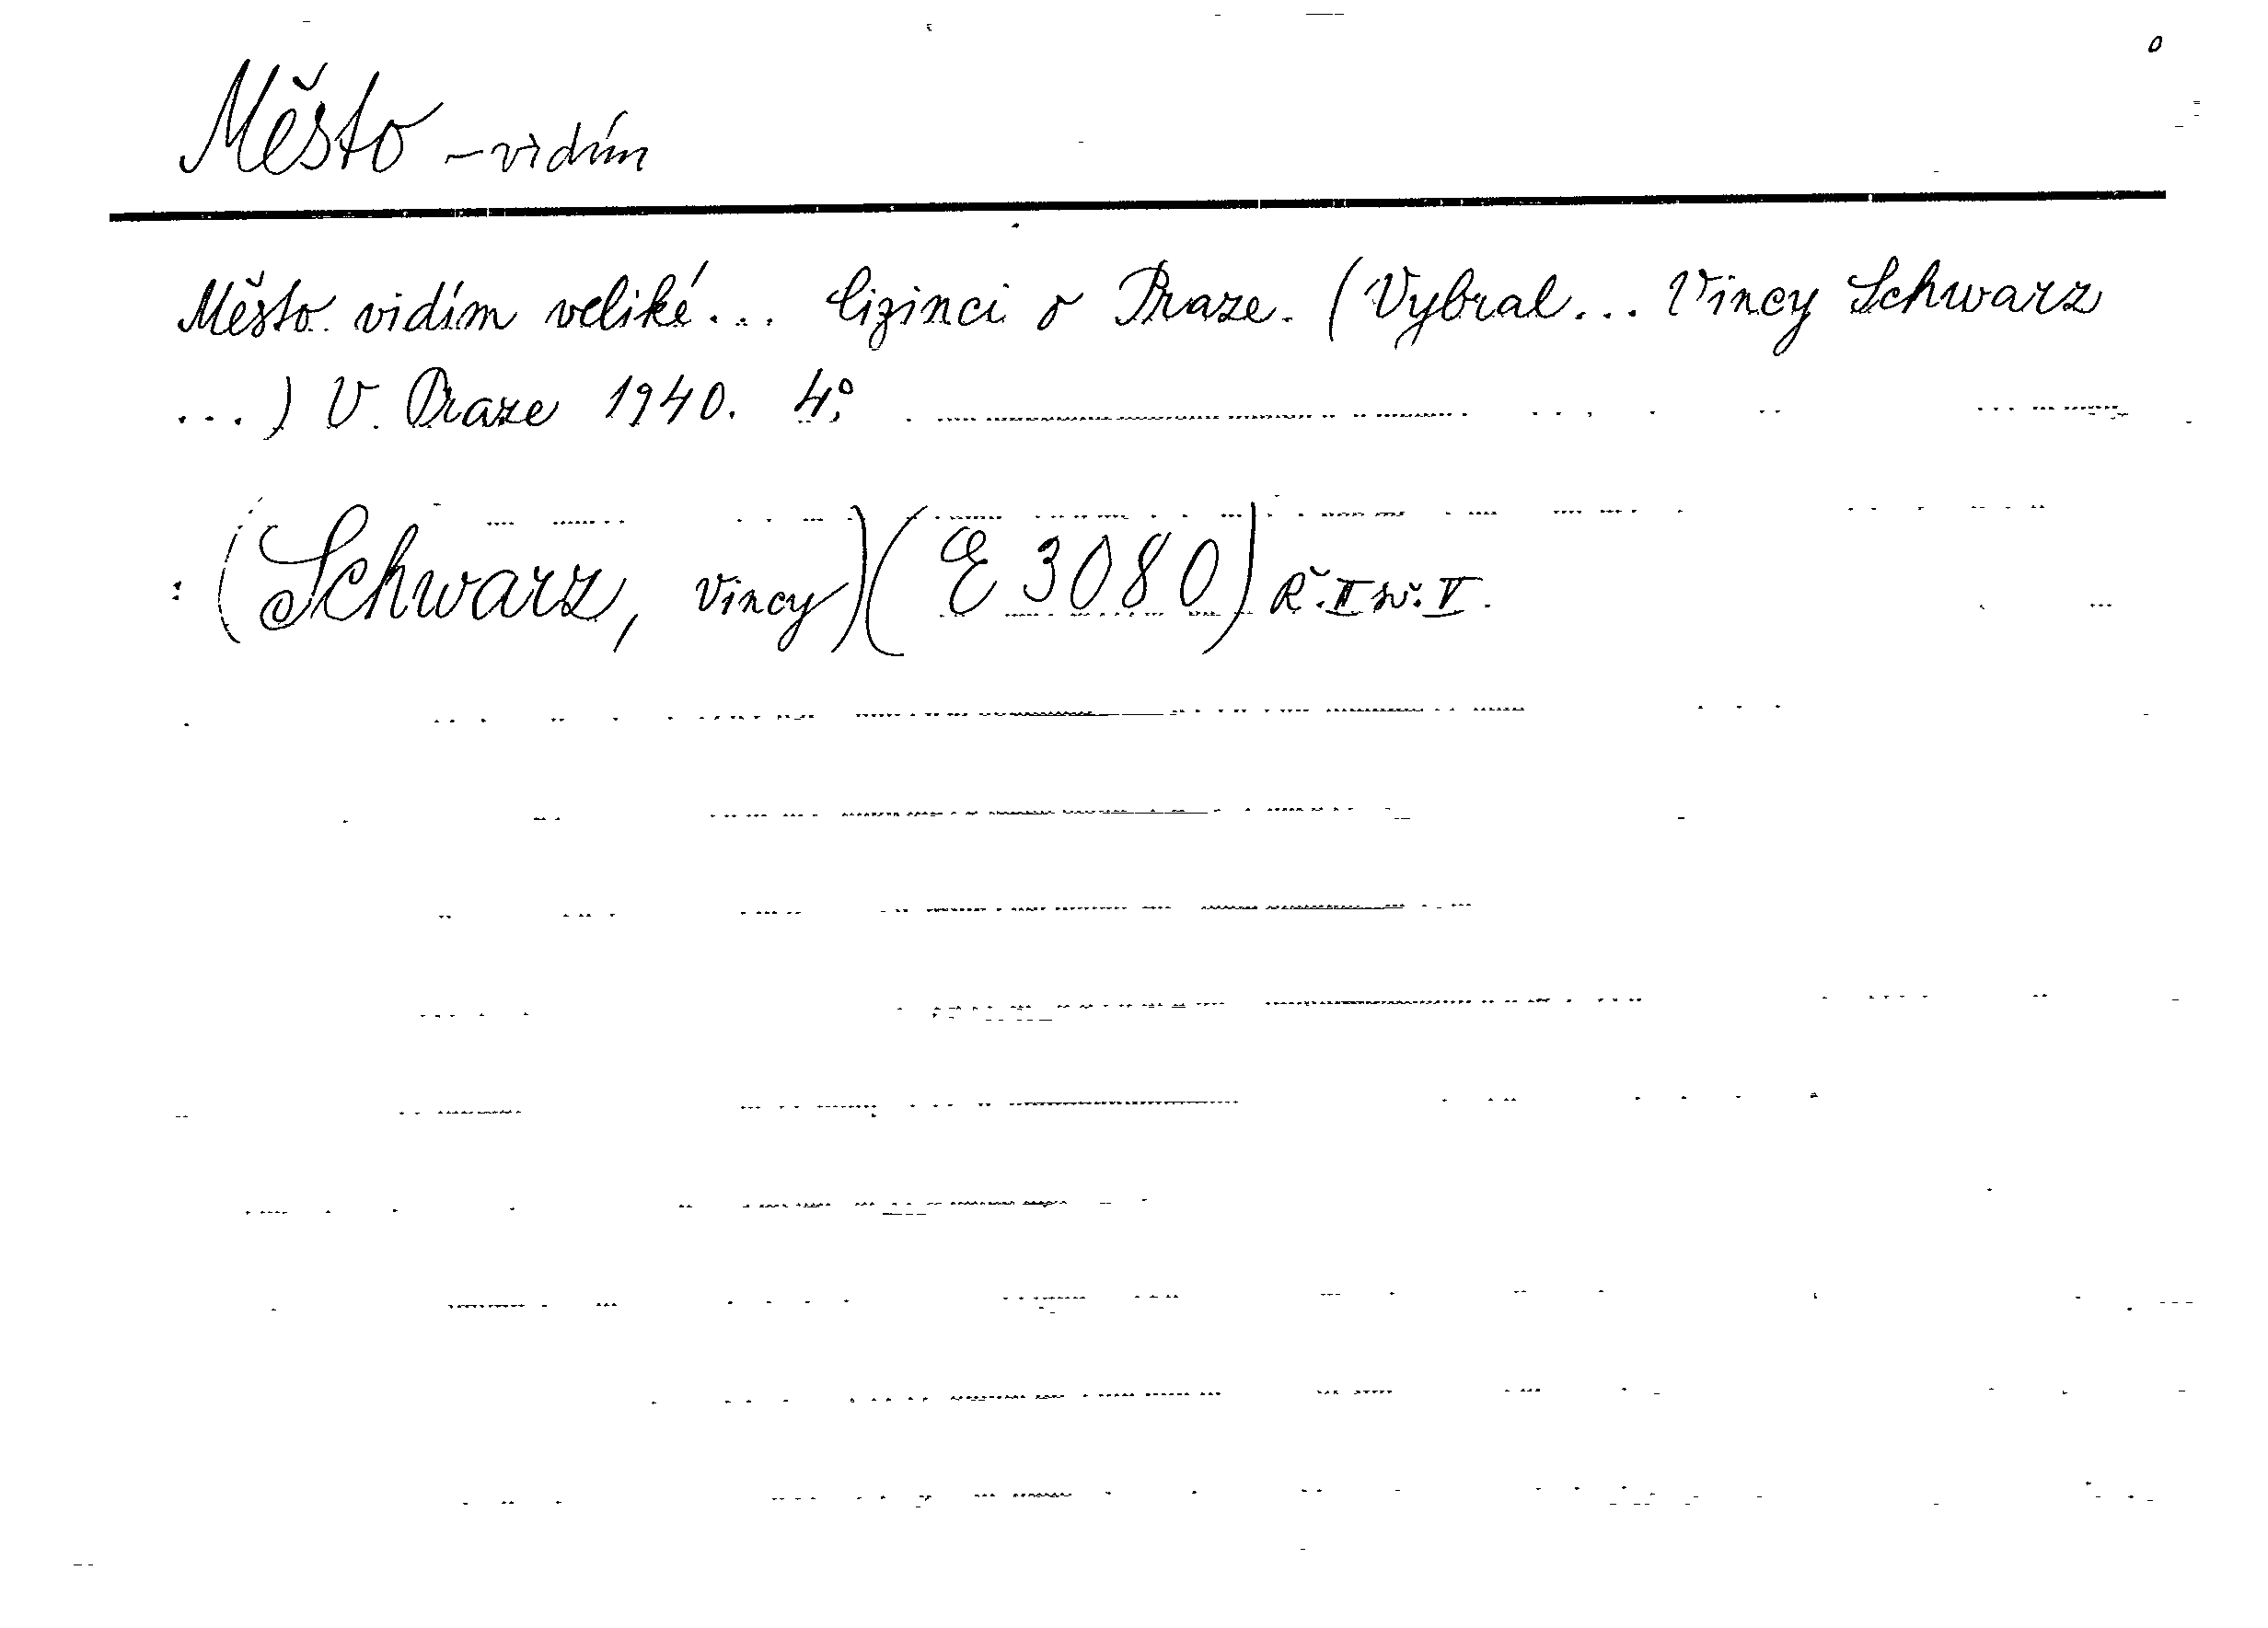 Město - vidím
Město vidím veliké... Cizinci o Praze. (Vybral... Vincy Schwarz
...) V Praze 1940. 4°.
: (Schwarz, Vincy) (E 3080) Ř. II